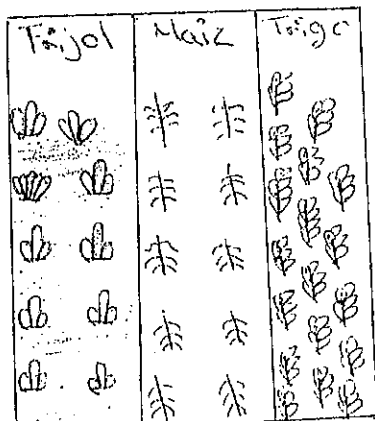 Frijol
Maíz
Trigo